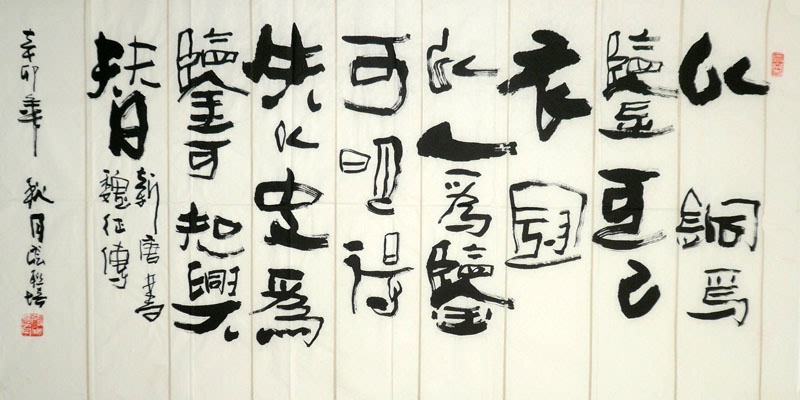 以銅爲
鑒可正
衣冠
以人爲鑒
可明得
失以史爲
鑒可知興
替
新唐書
魏征傳
辛卯年秋月